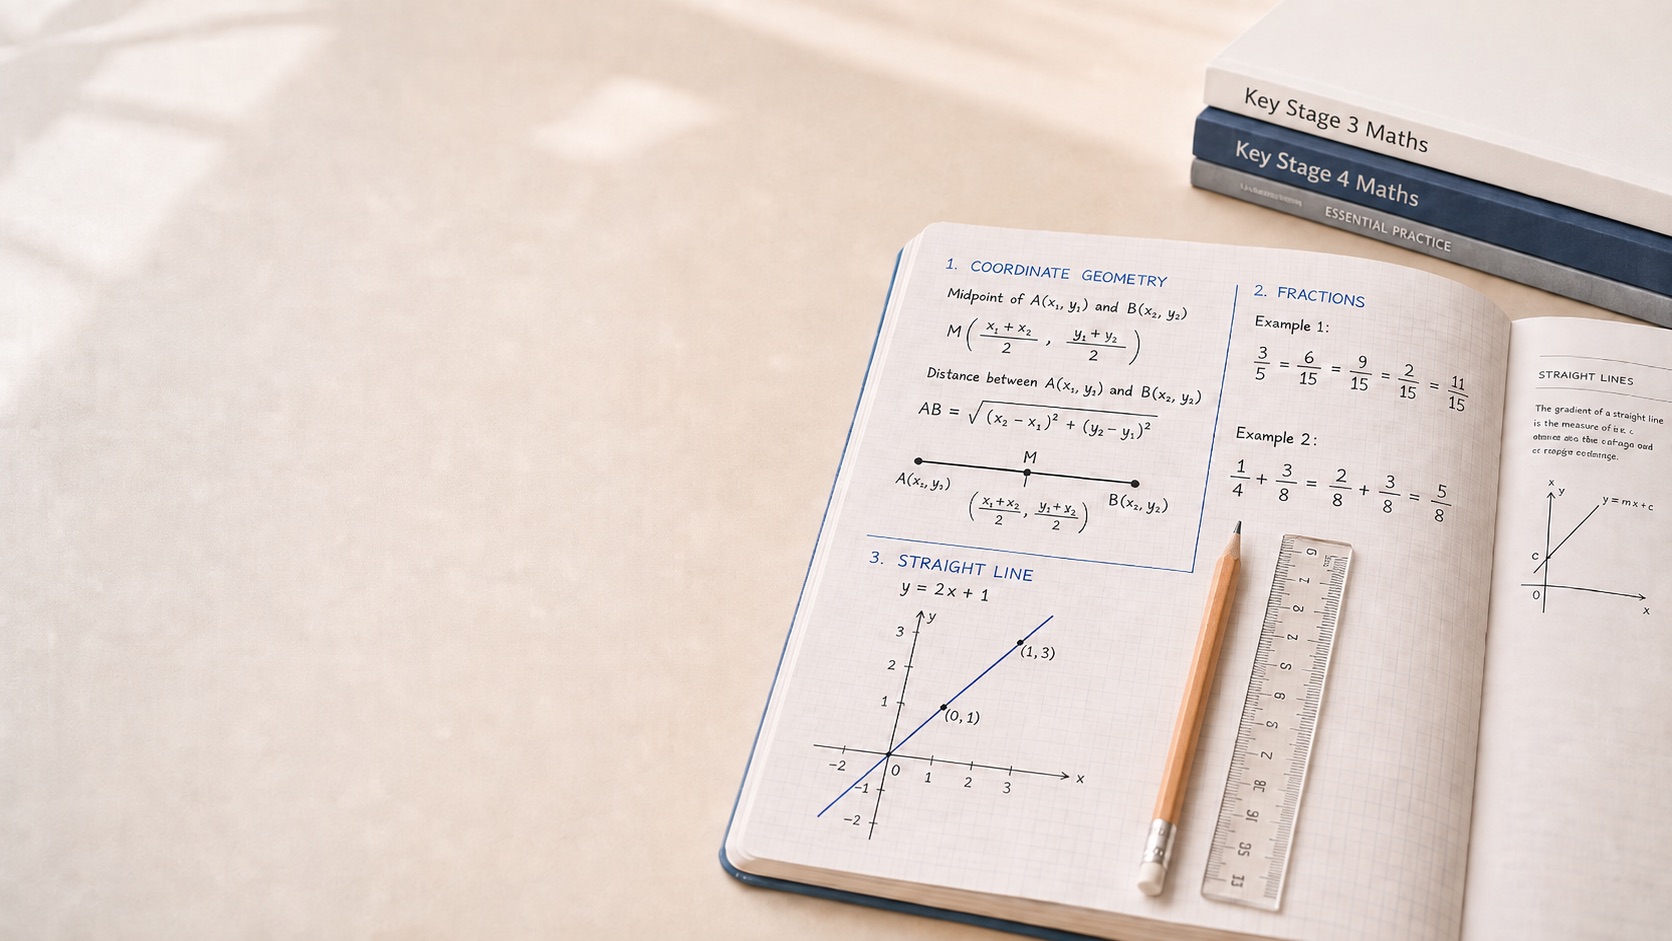 Key Stage 3 Maths
Key Stage 4 Maths
ESSENTIAL PRACTICE
1. COORDINATE GEOMETRY
Midpoint of A(x₁, y₁) and B(x₂, y₂)
M ( (x₁ + x₂)/2 , (y₁ + y₂)/2 )
Distance between A(x₁, y₂) and B(x₂, y₂)
AB = √((x₂ − x₁)² + (y₂ − y₁)²)
M
A(x₂, y₂)
B(x₂, y₂)
( (x₁ + x₂)/2 , (y₁ + x₂)/2 )
2. FRACTIONS
Example 1:
3/5 = 6/15 = 9/15 = 2/15 = 11/15
Example 2:
1/4 + 3/8 = 2/8 + 3/8 = 5/8
3. STRAIGHT LINE
y = 2x + 1
y
3
2
1
(1, 3)
(0, 1)
−2 0 1 2 3 x
−1
−2
STRAIGHT LINES
The gradient of a straight line
is the measure of
x
y
y = mx + c
c
0
x